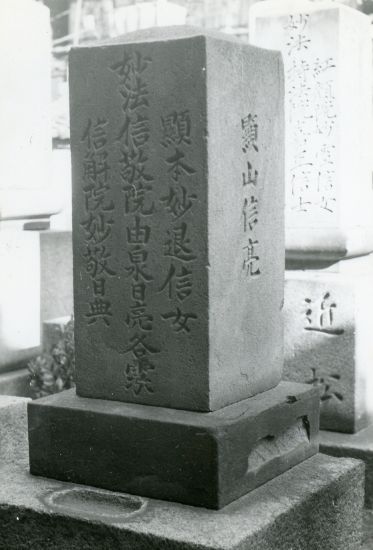 顯本妙退信女
妙法信敬院由泉日亮各霊
信解院妙敬日典
顯山信亮
妙法
信士
信女
近松